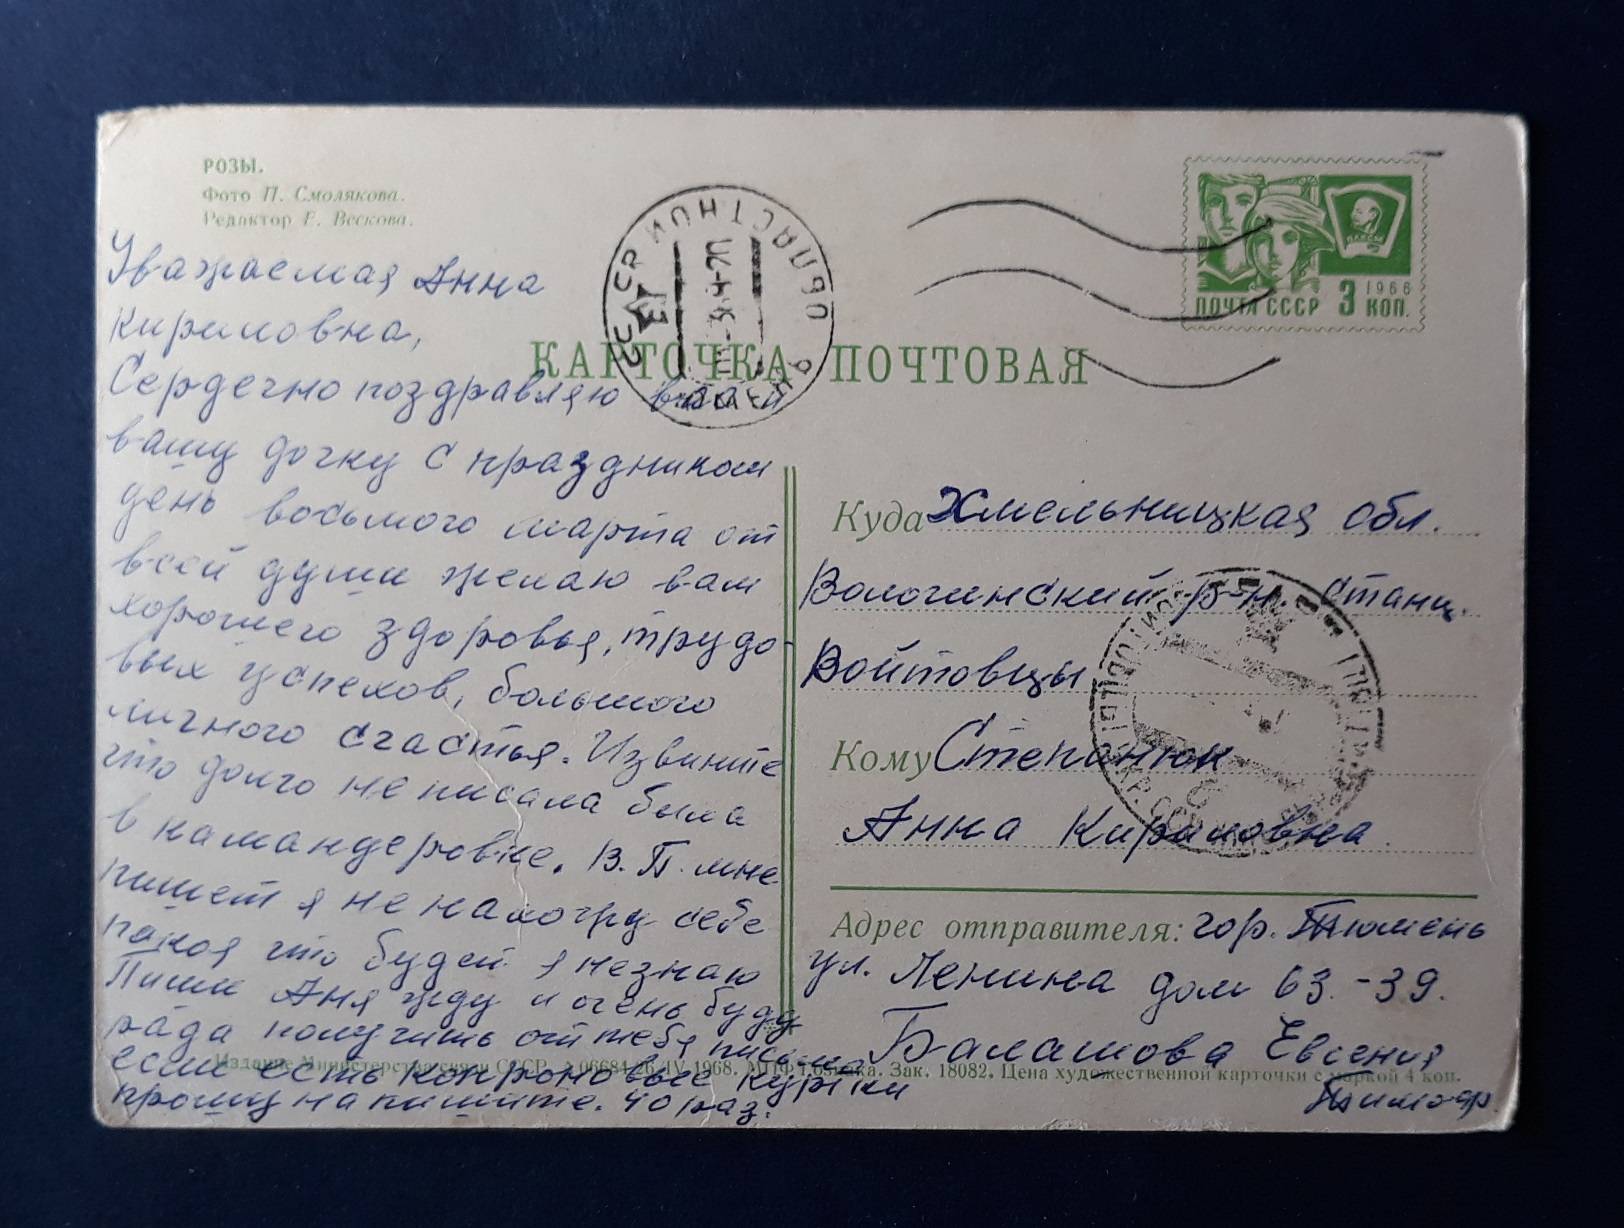 РОЗЫ.
Фото П. Смолякова.
Редактор Е. Вескова.
ПОЧТА СССР 3 КОП.
1966
ВЛКСМ
КАРТОЧКА ПОЧТОВАЯ
Уважаемая Анна
Кириловна,
Сердечно поздравляю вас и
вашу дочку с праздником
день восьмого марта от
всей души желаю вам
хорошего здоровья, трудо-
вых успехов, большого
личного счастья. Извините
что долго не писала была
в камандеровке. В. П. мне
пишет я не нахожу себе
покоя что будет я незнаю
Пиши Аня жду и очень буду
рада получить от тебя письма
если есть капроновые куртки
прошу напишите. 40 раз.
Куда Хмельницкая обл.
Волочинский р-н. Станц.
Войтовцы
Кому Степанюк
Анна Кириловна
Адрес отправителя: гор. Тюмень
ул. Ленина дом 63.-39.
Балашова Евгения
Издание Министерства связи СССР. 06684 IV.1968. МПФ Гознака. Зак. 18082. Цена художественной карточки с маркой 4 коп.